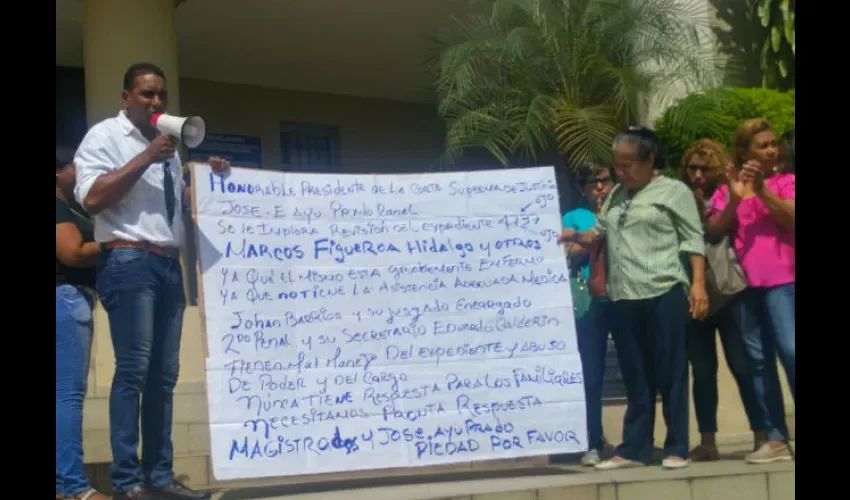 Honorable Presidente de la Corte Suprema de Justicia
José. E Ayu Prado Canal ojo
Se le implora Revisión del expediente 4737
Marcos Figueroa Hidalgo y otros ojo
ya que el mismo está gravemente Enfermo
ya que no tiene la Asistencia Adecuada Medica
Johan Barrios y su juzgado Encargado
2do Penal y su Secretario Eduardo Calderin
Tienen Mal Manejo Del expediente y Abuso
De Poder y Del Cargo
Nunca Tiene Respuesta Para los Familiares
Necesitamos Pronta Respuesta
Magistrados y Jose Ayu Prado
Piedad Por Favor